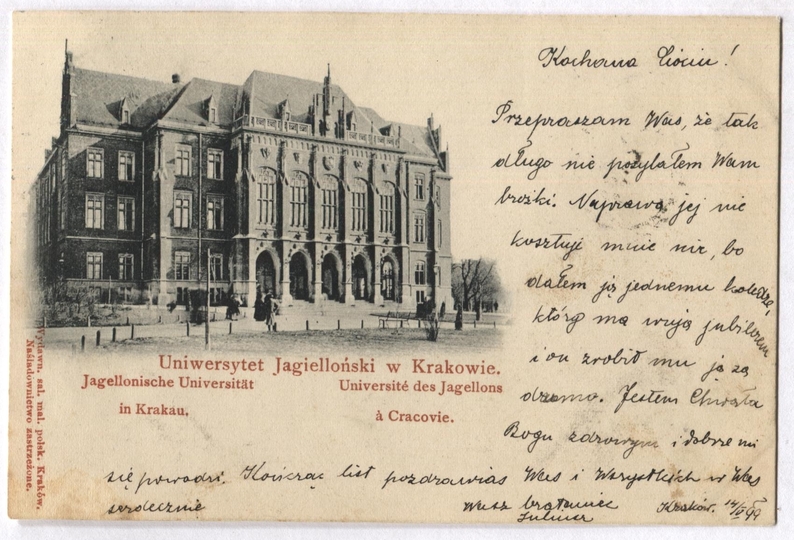 Kochana Ciociu!
Przepraszam Was, że tak
długo nie posyłałem Wam
brożki. Naprawa jej nie
kosztuje mnie nic, bo
dałem ją jednemu koledze,
który ma wuja jubilerem
i on zrobił mu ją za
darmo. Jestem Chwała
Bogu zdrowym i dobrze mi
się powodzi. Kończąc list pozdrawiam Was i Wszystkich u Was
serdecznie
Wasz bratanec
Kraków. 14/IV 99
Uniwersytet Jagielloński w Krakowie.
Jagellonische Universität
in Krakau.
Université des Jagellons
à Cracovie.
Wydawn. sal. mal. polsk. Kraków.
Naśladownictwo zastrzeżone.